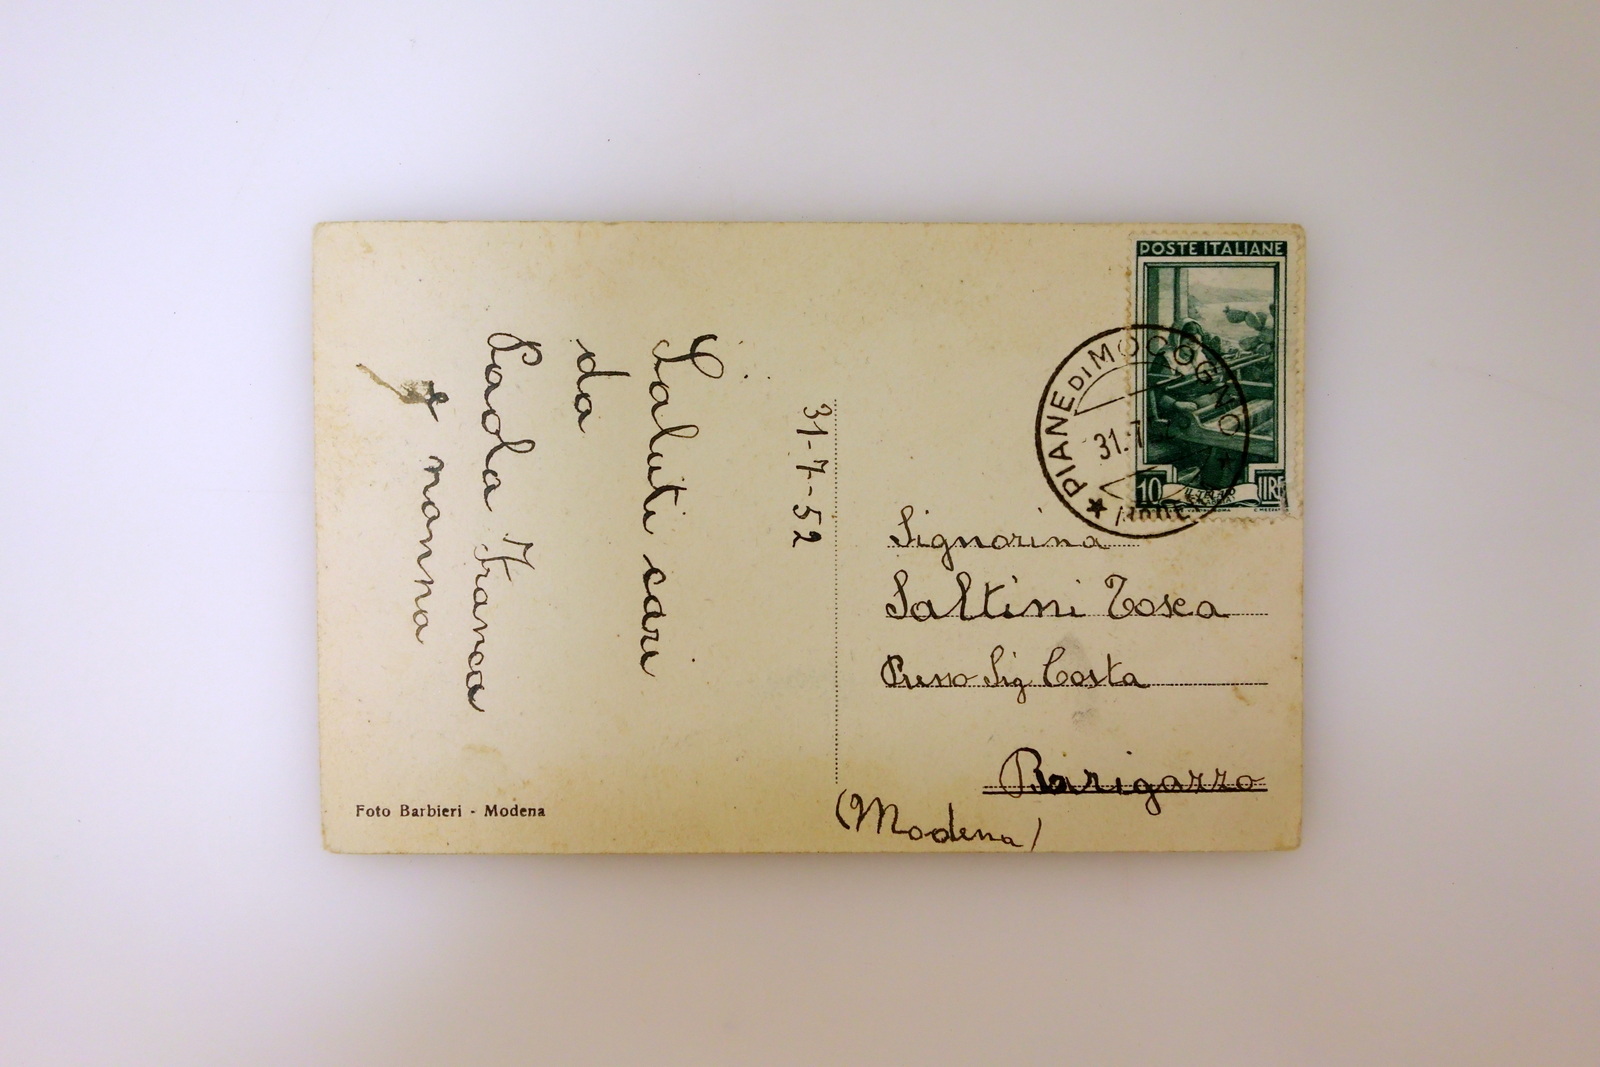 31-7-52
Saluti cari
da
Paola Franca
e nonna
Foto Barbieri - Modena
POSTE ITALIANE
10 LIRE
PIANE DI MOCOGNO
31.7.52
Signorina
Saltini Tosca
Presso Sig Costa
Barigazzo
(Modena)